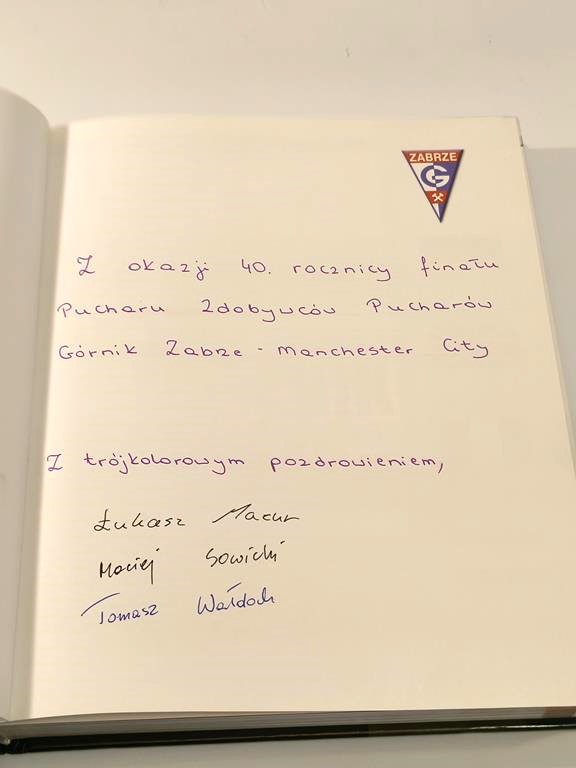 ZABRZE
G
Z okazji 40. rocznicy finału
Pucharu Zdobywców Pucharów
Górnik Zabrze - Manchester City
Z trójkolorowym pozdrowieniem,
Łukasz Mazur
Maciej Sowicki
Tomasz Wałdoch